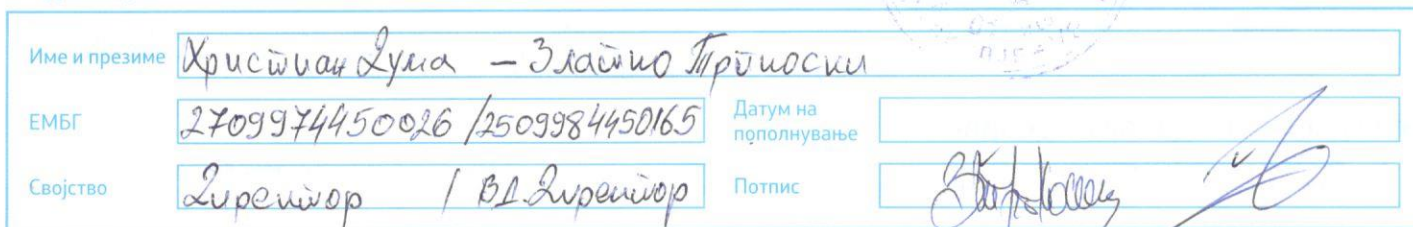 Име и презиме Христиан Дума – Златко Трпноски
ЕМБГ 2709974450026 / 2509984450165 Датум на пополнување
Својство Директор / ВД. Директор Потпис